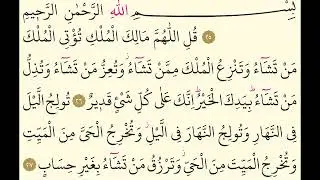 بِسْمِ اللهِ الرَّحْمٰنِ الرَّحِيْمِ
٢٥ قُلِ اللّٰهُمَّ مَالِكَ الْمُلْكِ تُؤْتِي الْمُلْكَ
مَنْ تَشَاءُ وَتَنْزِعُ الْمُلْكَ مِمَّنْ تَشَاءُ وَتُعِزُّ مَنْ تَشَاءُ وَتُذِلُّ
مَنْ تَشَاءُ بِيَدِكَ الْخَيْرُ اِنَّكَ عَلٰى كُلِّ شَيْءٍ قَدِيْرٌ ٢٦ تُولِجُ الَّيْلَ
فِي النَّهَارِ وَتُولِجُ النَّهَارَ فِي الَّيْلِ وَتُخْرِجُ الْحَيَّ مِنَ الْمَيِّتِ
وَتُخْرِجُ الْمَيِّتَ مِنَ الْحَيِّ وَتَرْزُقُ مَنْ تَشَاءُ بِغَيْرِ حِسَابٍ ٢٧